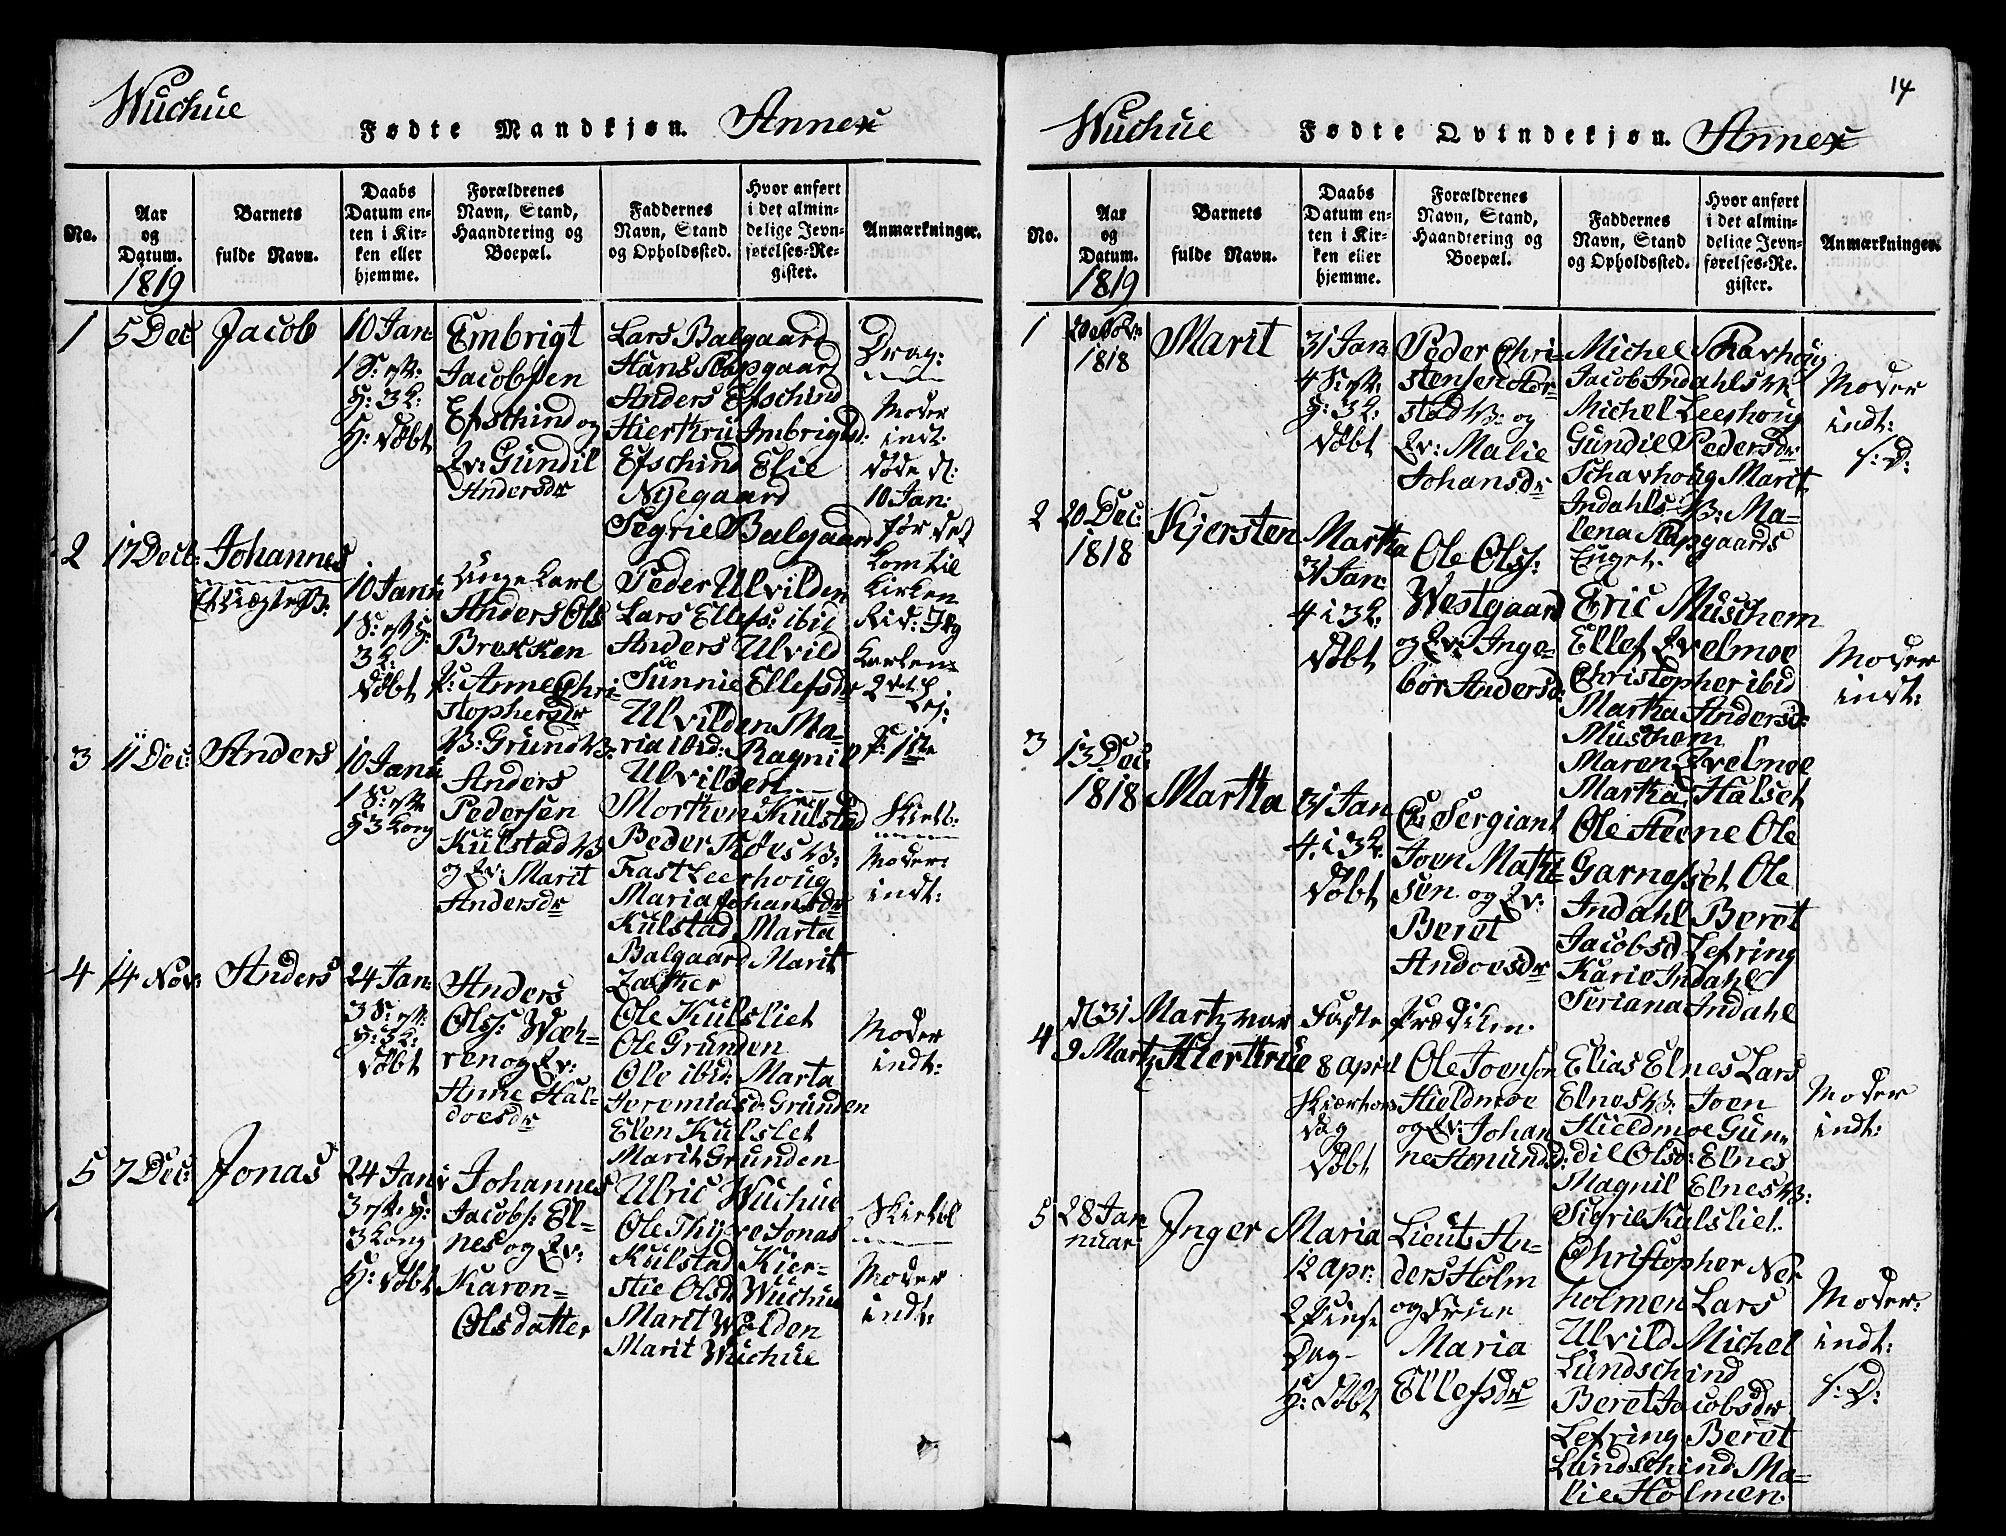 Wuchue
Fødte Mandkjøn.
Annex
No.
Aar
og
Datum.
1819
Barnets
fulde Navn.
Daabs
Datum en-
ten i Kir-
ken eller
hjemme.
Forældrenes
Navn, Stand,
Haandtering og
Boepæl.
Faddernes
Navn, Stand
og Opholdssted.
Hvor anført
i det almin-
delige Jevn-
førelses-Re-
gister.
Anmærkninger.
1
5 Dec
Jacob
10 Jan:
3 K:
H: døbt
Embrigt
Jacobsen
Efschind og
Qv: Gundil
Andersdr
Lars Balgaard
Hans Slapgaard
Anders Efschind
Hiertru Imbrigtsd:
Efschind Elie
Nÿegaard
Segrie Balgaard
Drag:
Moder
indt:
døde d:
10 Jan:
før det
kom til
Kirken
2
17 Decb:
Johannes
10 Janu
3 K:
døbt
Unge Karl
Anders Ols
Brekken
P: Anne Chri-
stophersdr
B: Grund B:
Peder Ulvilden
Lars Ellefs: ibid
Anders Ulvild
Sunnie Ellefsdr
Ulvilden Ma-
ria ibid: Ragnil
Ulvilden
3
11 Dec:
Anders
10 Janu
3 Kong
Anders
Pedersen
Kulstad B
og Qv: Marit
Andersdr
Morten Kulstad
Peder Moes B:
Fast Leerhoug
Maria Johansdr
Kulstad Marta
Balgaard Marit
Moder
indt:
4
14 Nov:
Anders
24 Jan:
3 S: eft:
H: 3 K:
døbt
Anders
Ols: Wæh-
ren og Qv:
Anne Hal-
doesdr
Ole Kulsliet
Ole Grunden
Ole ibid: Marta
Jeremiasd: Grunden
Elen Kulslet
Marit Grunden
Moder
indt:
5
7 Dec:
Jonas
24 Janu
3 eft: H:
3 Kong
H: døbt
Johannes
Jacobs: El-
nes og Qv:
Karen
Olsdatter
Ulric Wuchue
Ole Thÿre Jonas
Kulstad Kier-
stie Olsd: Wuchue
Marit Wolden
Marit Wuchue
Moder
indt:
14
Wuchue
Fødte Qvindekjøn.
Annex
No.
Aar
og
Datum.
1819
Barnets
fulde Navn.
Daabs
Datum en-
ten i Kir-
ken eller
hjemme.
Forældrenes
Navn, Stand,
Haandtering og
Boepæl.
Faddernes
Navn, Stand
og Opholdssted.
Hvor anført
i det almin-
delige Jevn-
førelses-Re-
gister.
Anmærkninger.
1
1818
Marit
31 Jan:
4 S: eft:
H: 3 K:
døbt
Peder Chri-
stensen For-
stad B: og
Qv: Malie
Johansdr
Michel Skavhoug
Jacob Indahls B:
Michel Leerhoug
Gundil Pedersdr
Schavhoug Marit
Indahls B: Ma-
lena Slapgaards
Enget.
Moder
indt:
s: D:
2
20 Dec:
1818
Kjersten Martha
31 Jan:
4 i 3 K:
døbt
Ole Ols:
Westgaard
og Qv: Inge-
bor Andersd:
Eric Muschem
Ellef Qvelmoe
Christopher ibid
Martha Andersd:
Muschem
Maren Qvelmoe
Martha Halset
Moder
indt:
3
13 Dec:
1818
Martha
31 Jan
4. i 3 K:
døbt
Sergiant
Joen Mathi-
sen og Qv:
Beret
Andoesdr
Ole Steene Ole
Garnesset Ole
Indahl Beret
Jacobsd Lefring
Karie Indahl
Seriana Indahl
d 31 Martz var Faste Prædiken.
4
9 Martz
Hiertrue
8 april
Skiærtors
dag
døbt
Ole Joensen
Hieldmoe
og Qv: Johan
ne Amundsd:
Elias Elnes Lars
Elnes B: Joen
Hieldmoe Gun-
dil Olsd: Elnes
Magnil Elnes B:
Sigrie Kulsliet
Moder
indt:
5
28 Jan
nuar
Inger Maria
12 apr:
2 Paaske
Dag
H: døbt
Lieut: An-
ders Holm
og Frue
Maria
Ellefsdr
Christopher Ner
holmen Lars
Ulvild Michel
Lundschind
Beret Jacobsdr
Lefring Beret
Lundschind Ma-
lie Holmen.
Moder:
indt:
s: D: